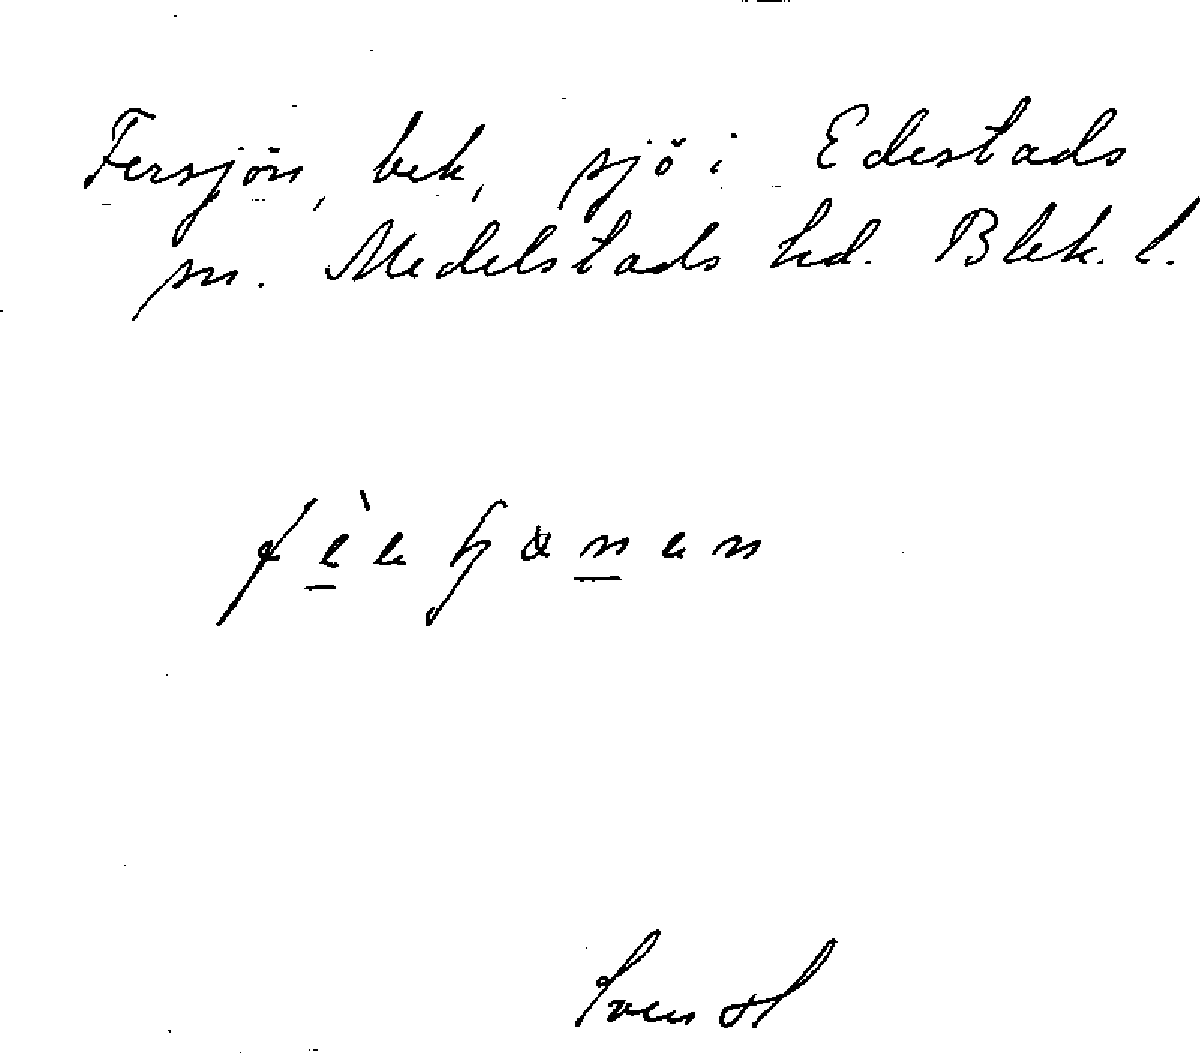 Fersjön, bek, sjö i Edestads
sn. Medelstads hd. Blek. l.
Sven H